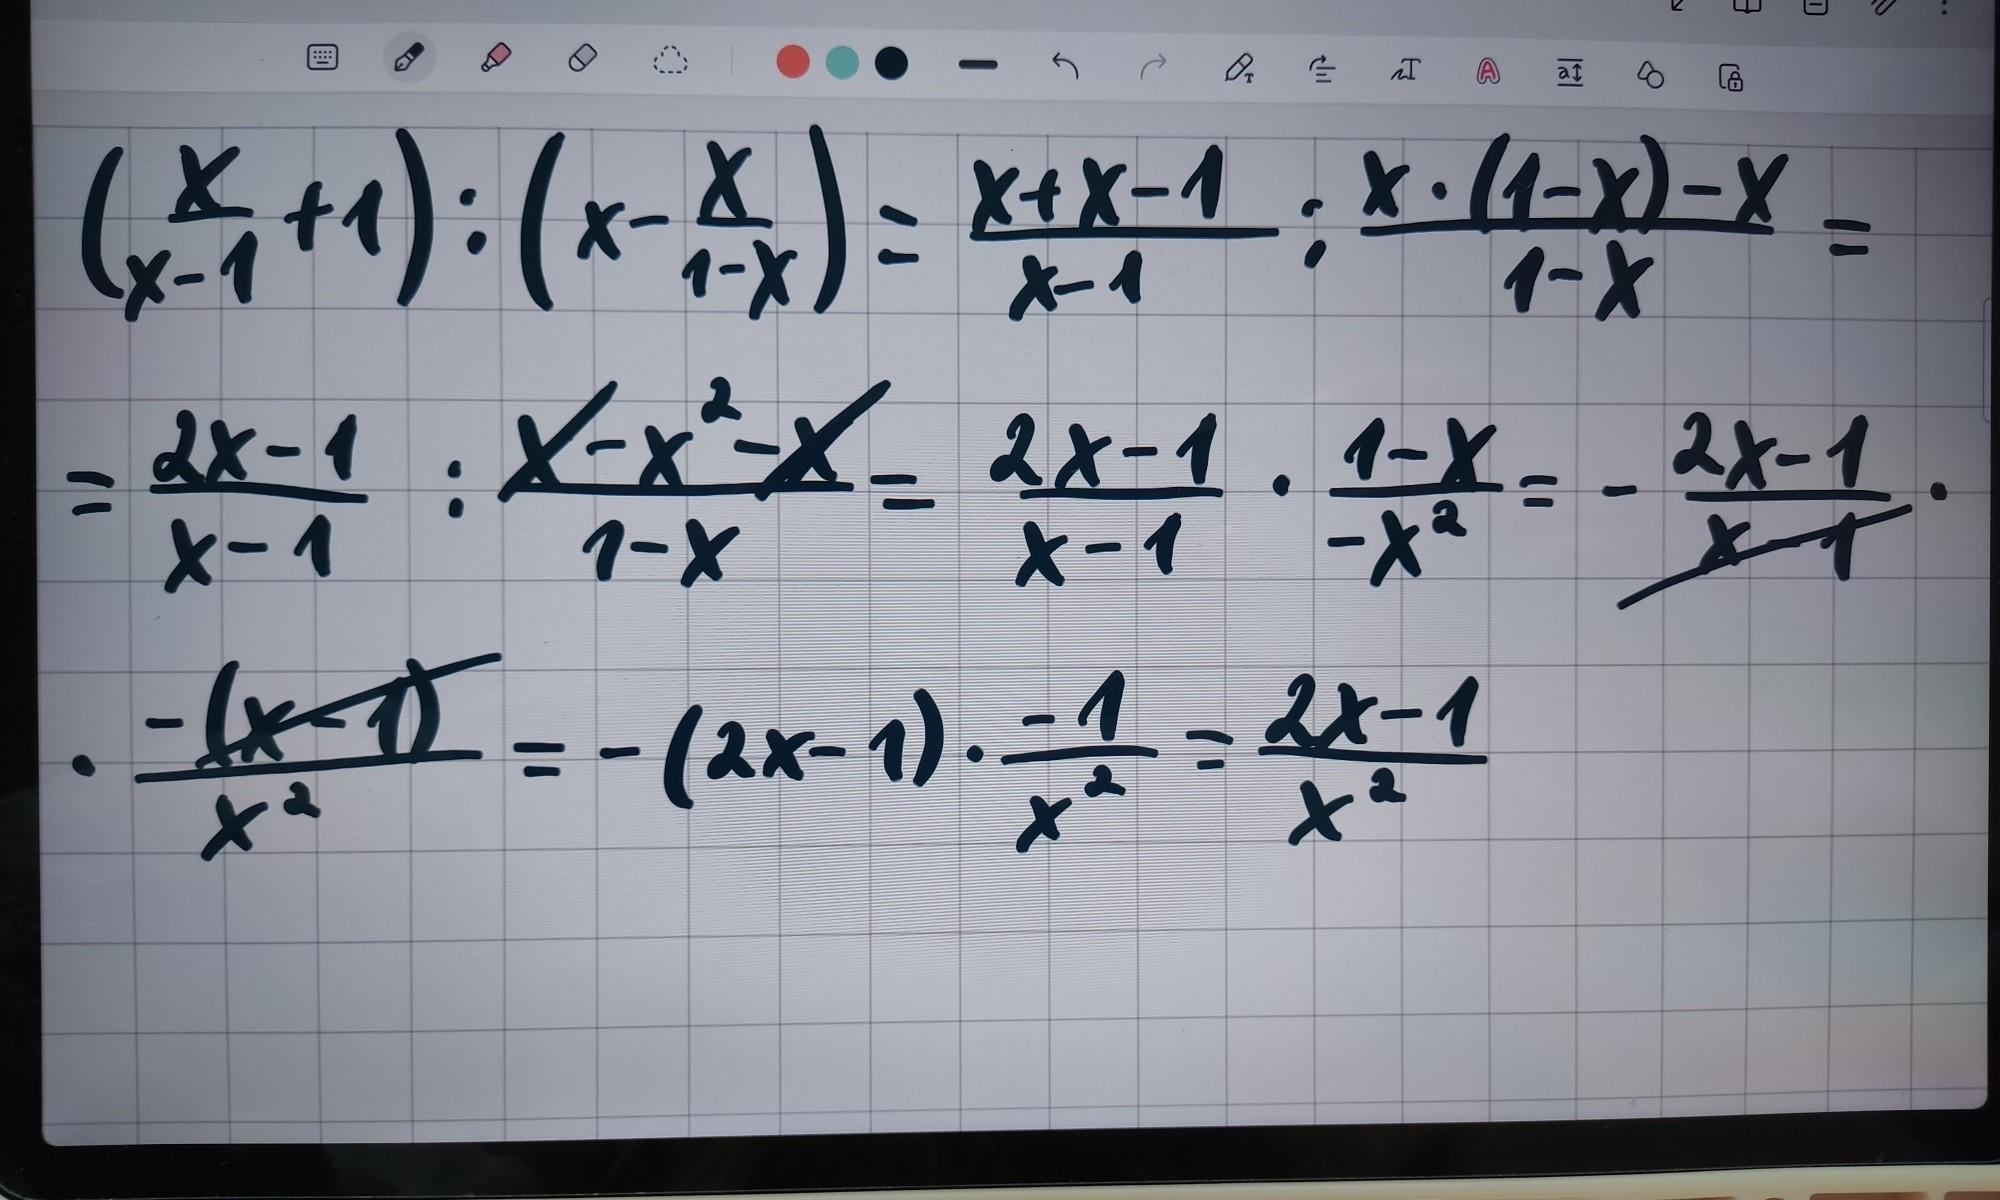 (x/(x-1) + 1) : (x - x/(1-x)) = (x+x-1)/(x-1) : (x·(1-x)-x)/(1-x) =
= (2x-1)/(x-1) : (x-x²-x)/(1-x) = (2x-1)/(x-1) · (1-x)/(-x²) = - (2x-1)/(x-1) ·
· (-(x-1))/x² = -(2x-1) · (-1)/x² = (2x-1)/x²